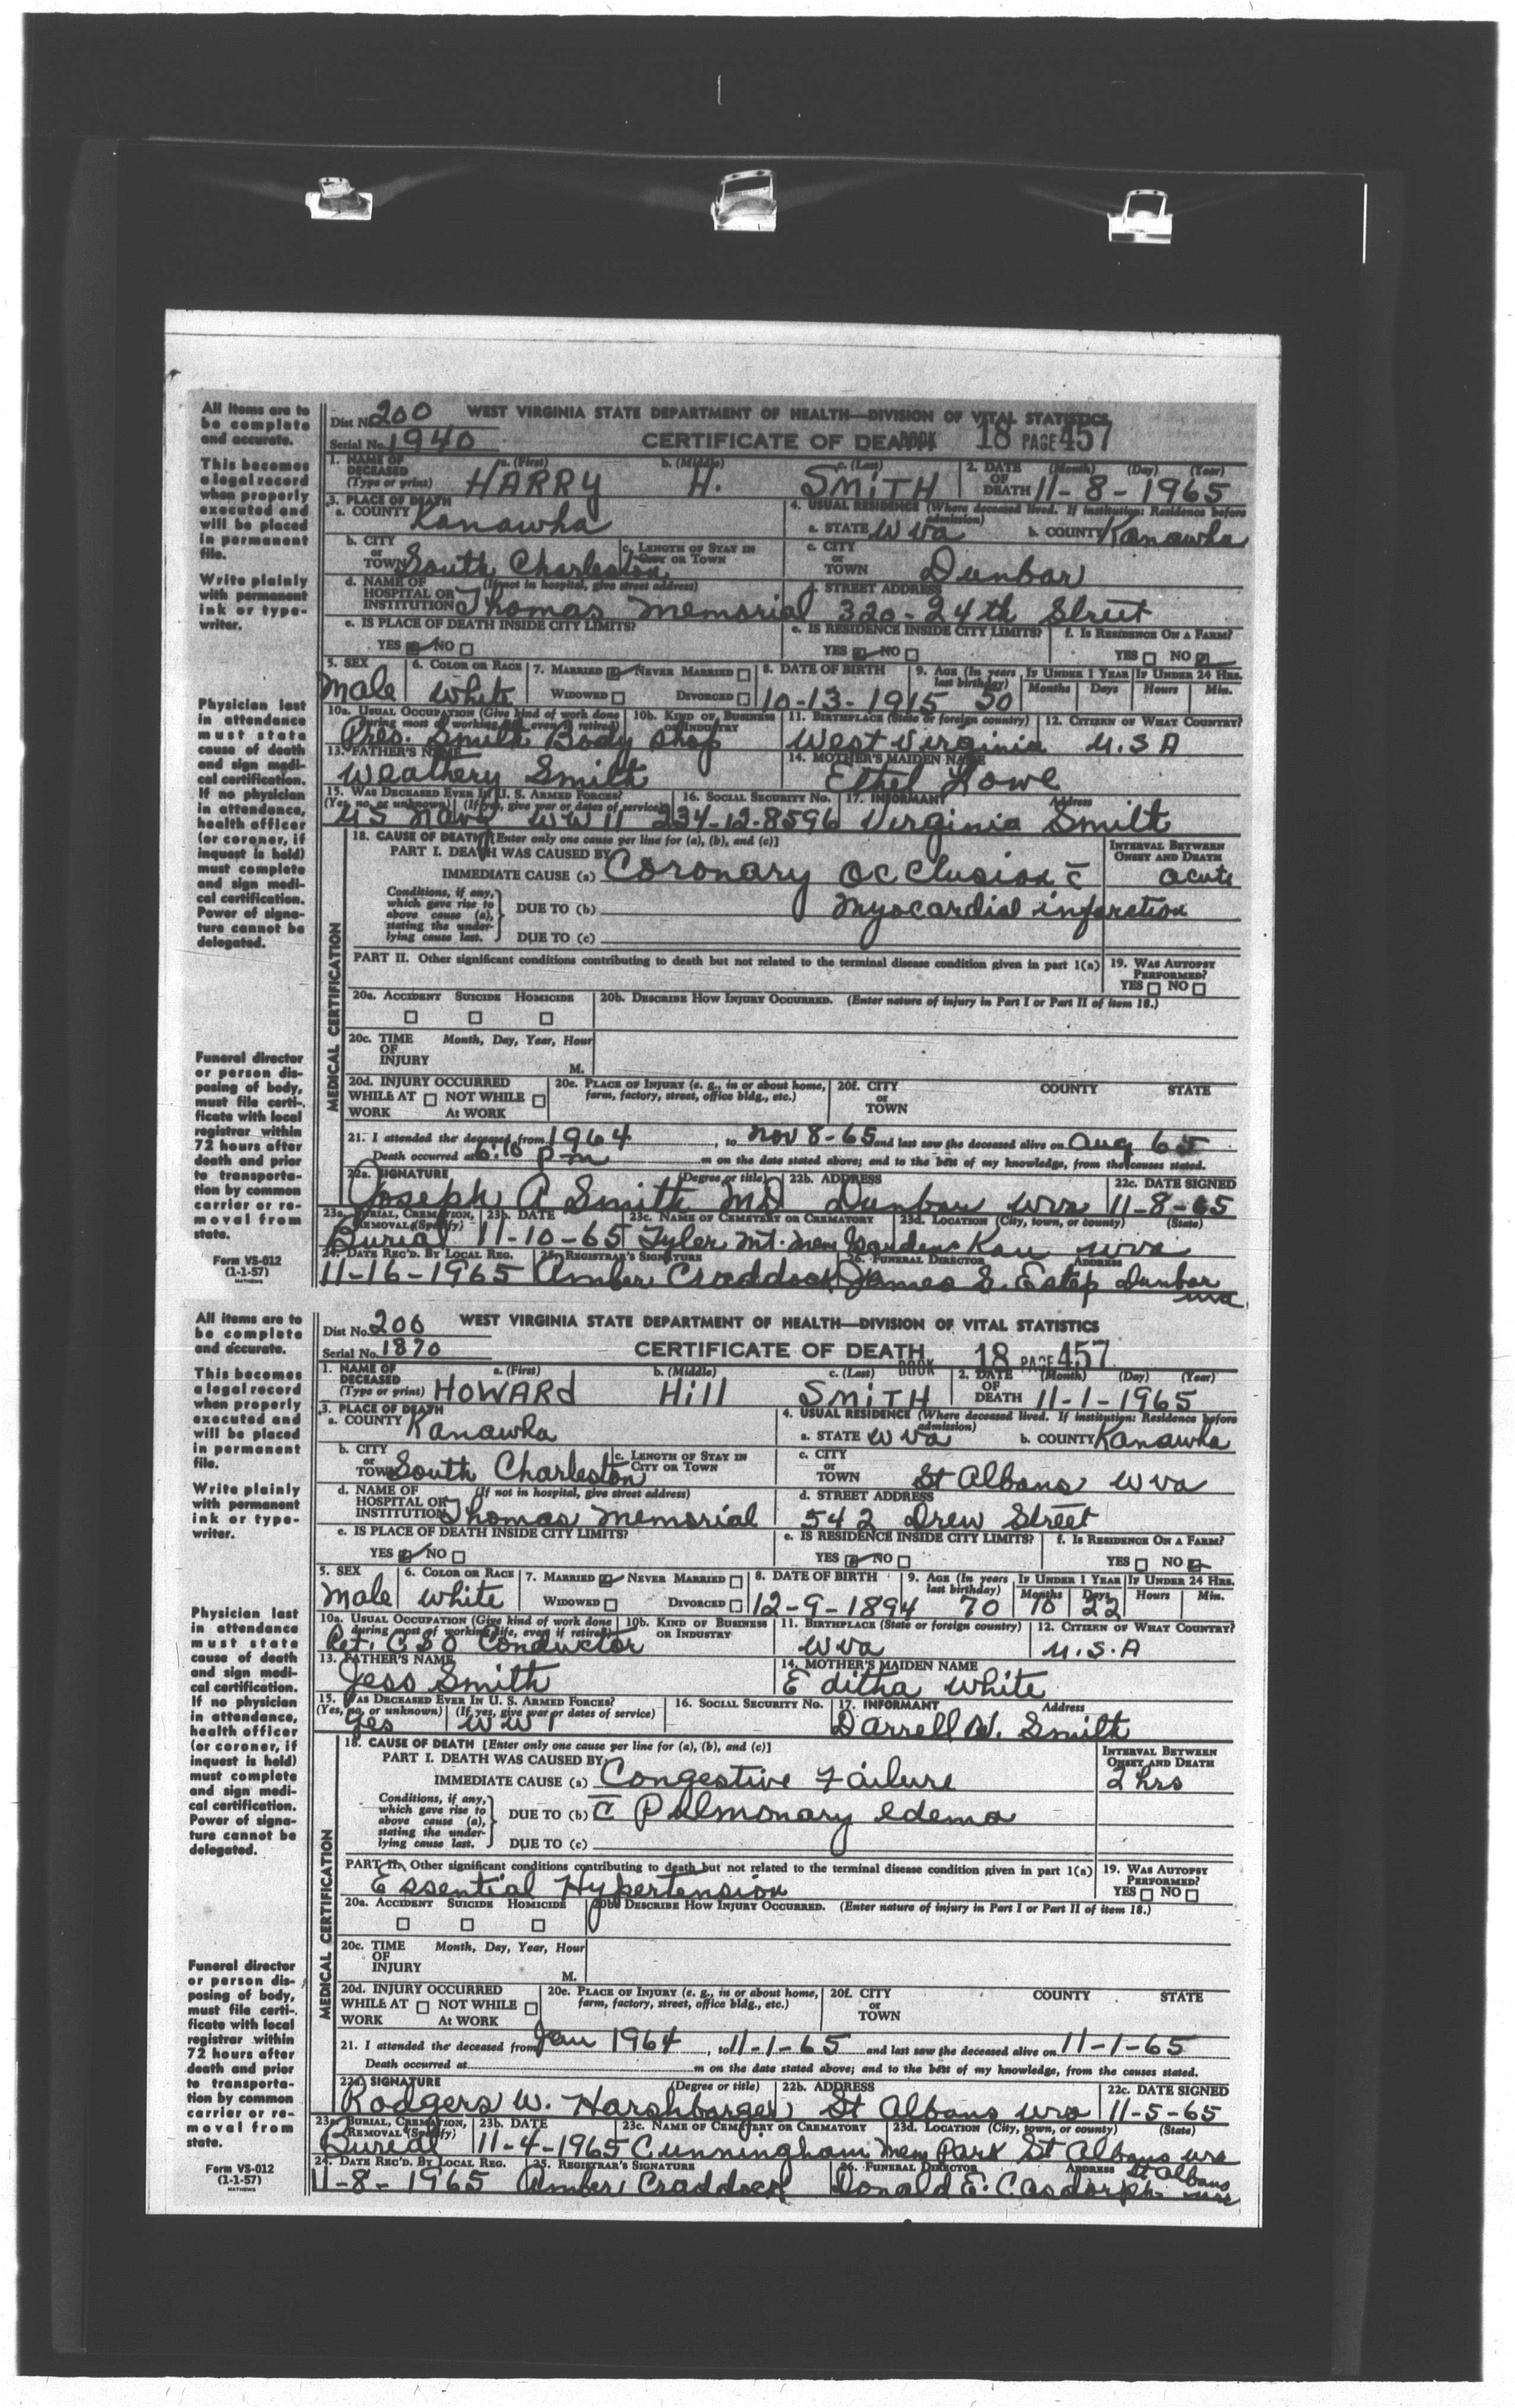 All items are to be complete and accurate.
This becomes a legal record when properly executed and will be placed in permanent file.
Write plainly with permanent ink or type-writer.
Physician last in attendance must state cause of death and sign medi-cal certification. If no physician in attendance, health officer (or coroner, if inquest is held) must complete and sign medi-cal certification. Power of signa-ture cannot be delegated.
Funeral director or person dis-posing of body, must file certi-ficate with local registrar within 72 hours after death and prior to transporta-tion by common carrier or re-moval from state.
Form VS-012
(1-1-57)
Dist No. 200 WEST VIRGINIA STATE DEPARTMENT OF HEALTH—DIVISION OF VITAL STATISTICS
Serial No. 1940 CERTIFICATE OF DEATH BOOK 18 PAGE 457
1. NAME OF DECEASED (Type or print) a. (First) HARRY b. (Middle) H. c. (Last) SMITH 2. DATE OF DEATH (Month) (Day) (Year) 11-8-1965
3. PLACE OF DEATH a. COUNTY Kanawha 4. USUAL RESIDENCE (Where deceased lived. If institution: Residence before admission) a. STATE W Va b. COUNTY Kanawha
b. CITY or TOWN South Charleston c. LENGTH OF STAY IN CITY OR TOWN c. CITY or TOWN Dunbar
d. NAME OF HOSPITAL OR INSTITUTION (If not in hospital, give street address) Thomas Memorial d. STREET ADDRESS 320-24th Street
e. IS PLACE OF DEATH INSIDE CITY LIMITS? e. IS RESIDENCE INSIDE CITY LIMITS? f. IS RESIDENCE ON A FARM?
YES NO YES NO YES NO
5. SEX Male 6. COLOR OR RACE White 7. MARRIED NEVER MARRIED WIDOWED DIVORCED 8. DATE OF BIRTH 10-13-1915 9. AGE (In years last birthday) 50 IF UNDER 1 YEAR Months Days IF UNDER 24 HRS. Hours Min.
10a. USUAL OCCUPATION (Give kind of work done during most of working life, even if retired) Pres. Smith Body Shop 10b. KIND OF BUSINESS OR INDUSTRY 11. BIRTHPLACE (State or foreign country) West Virginia 12. CITIZEN OF WHAT COUNTRY? U.S.A
13. FATHER'S NAME Weathery Smith 14. MOTHER'S MAIDEN NAME Ethel Lowe
15. WAS DECEASED EVER IN U. S. ARMED FORCES? (Yes, no, or unknown) (If yes, give war or dates of service) US Navy WW II 16. SOCIAL SECURITY NO. 234-12-8596 17. INFORMANT Address Virginia Smith
MEDICAL CERTIFICATION
18. CAUSE OF DEATH [Enter only one cause per line for (a), (b), and (c)] INTERVAL BETWEEN ONSET AND DEATH
PART I. DEATH WAS CAUSED BY:
IMMEDIATE CAUSE (a) Coronary Occlusion c̄ acute
Conditions, if any, which gave rise to above cause (a), stating the under-lying cause last. DUE TO (b) myocardial infarction
DUE TO (c)
PART II. Other significant conditions contributing to death but not related to the terminal disease condition given in part 1(a) 19. WAS AUTOPSY PERFORMED? YES NO
20a. ACCIDENT SUICIDE HOMICIDE 20b. DESCRIBE HOW INJURY OCCURRED. (Enter nature of injury in Part I or Part II of item 18.)
20c. TIME OF INJURY Month, Day, Year, Hour M.
20d. INJURY OCCURRED WHILE AT WORK NOT WHILE At WORK 20e. PLACE OF INJURY (e. g., in or about home, farm, factory, street, office bldg., etc.) 20f. CITY or TOWN COUNTY STATE
21. I attended the deceased from 1964, to Nov 8-65 and last saw the deceased alive on Aug 65
Death occurred at 6:10 Pm m on the date stated above; and to the best of my knowledge, from the causes stated.
22a. SIGNATURE (Degree or title) Joseph A Smith MD 22b. ADDRESS Dunbar wva 22c. DATE SIGNED 11-8-65
23a. BURIAL, CREMATION, REMOVAL (Specify) Burial 23b. DATE 11-10-65 23c. NAME OF CEMETERY OR CREMATORY Tyler Mt. Mem Gardens 23d. LOCATION (City, town, or county) (State) Kan wva
24. DATE REC'D. BY LOCAL REG. 11-16-1965 25. REGISTRAR'S SIGNATURE Amber Craddock 26. FUNERAL DIRECTOR ADDRESS James S. Estep Dunbar wva
All items are to be complete and accurate.
This becomes a legal record when properly executed and will be placed in permanent file.
Write plainly with permanent ink or type-writer.
Physician last in attendance must state cause of death and sign medi-cal certification. If no physician in attendance, health officer (or coroner, if inquest is held) must complete and sign medi-cal certification. Power of signa-ture cannot be delegated.
Funeral director or person dis-posing of body, must file certi-ficate with local registrar within 72 hours after death and prior to transporta-tion by common carrier or re-moval from state.
Form VS-012
(1-1-57)
MATHEWS
Dist No. 206 WEST VIRGINIA STATE DEPARTMENT OF HEALTH—DIVISION OF VITAL STATISTICS
Serial No. 1870 CERTIFICATE OF DEATH BOOK 18 PAGE 457
1. NAME OF DECEASED (Type or print) a. (First) HOWARd b. (Middle) Hill c. (Last) SMITH 2. DATE OF DEATH (Month) (Day) (Year) 11-1-1965
3. PLACE OF DEATH a. COUNTY Kanawha 4. USUAL RESIDENCE (Where deceased lived. If institution: Residence before admission) a. STATE W Va b. COUNTY Kanawha
b. CITY or TOWN South Charleston c. LENGTH OF STAY IN CITY OR TOWN c. CITY or TOWN St Albans W Va
d. NAME OF HOSPITAL OR INSTITUTION (If not in hospital, give street address) Thomas Memorial d. STREET ADDRESS 542 Drew Street
e. IS PLACE OF DEATH INSIDE CITY LIMITS? e. IS RESIDENCE INSIDE CITY LIMITS? f. IS RESIDENCE ON A FARM?
YES NO YES NO YES NO
5. SEX Male 6. COLOR OR RACE White 7. MARRIED NEVER MARRIED WIDOWED DIVORCED 8. DATE OF BIRTH 12-9-1894 9. AGE (In years last birthday) 70 IF UNDER 1 YEAR Months 10 Days 22 IF UNDER 24 HRS. Hours Min.
10a. USUAL OCCUPATION (Give kind of work done during most of working life, even if retired) Ret. C & O Conductor 10b. KIND OF BUSINESS OR INDUSTRY 11. BIRTHPLACE (State or foreign country) W Va 12. CITIZEN OF WHAT COUNTRY? U.S.A
13. FATHER'S NAME Jess Smith 14. MOTHER'S MAIDEN NAME Editha White
15. WAS DECEASED EVER IN U. S. ARMED FORCES? (Yes, no, or unknown) (If yes, give war or dates of service) Yes WW I 16. SOCIAL SECURITY NO. 17. INFORMANT Address Darrell W. Smith
MEDICAL CERTIFICATION
18. CAUSE OF DEATH [Enter only one cause per line for (a), (b), and (c)] INTERVAL BETWEEN ONSET AND DEATH
PART I. DEATH WAS CAUSED BY:
IMMEDIATE CAUSE (a) Congestive Failure 2 hrs
Conditions, if any, which gave rise to above cause (a), stating the under-lying cause last. DUE TO (b) c̄ Pulmonary edema
DUE TO (c)
PART II. Other significant conditions contributing to death but not related to the terminal disease condition given in part 1(a) 19. WAS AUTOPSY PERFORMED? YES NO
Essential Hypertension
20a. ACCIDENT SUICIDE HOMICIDE 20b. DESCRIBE HOW INJURY OCCURRED. (Enter nature of injury in Part I or Part II of item 18.)
20c. TIME OF INJURY Month, Day, Year, Hour M.
20d. INJURY OCCURRED WHILE AT WORK NOT WHILE At WORK 20e. PLACE OF INJURY (e. g., in or about home, farm, factory, street, office bldg., etc.) 20f. CITY or TOWN COUNTY STATE
21. I attended the deceased from Jan 1964, to 11-1-65 and last saw the deceased alive on 11-1-65
Death occurred at m on the date stated above; and to the best of my knowledge, from the causes stated.
22a. SIGNATURE (Degree or title) Rodgers W. Harshbarger 22b. ADDRESS St Albans wva 22c. DATE SIGNED 11-5-65
23a. BURIAL, CREMATION, REMOVAL (Specify) Burial 23b. DATE 11-4-1965 23c. NAME OF CEMETERY OR CREMATORY Cunningham Mem Park 23d. LOCATION (City, town, or county) (State) St Albans wva
24. DATE REC'D. BY LOCAL REG. 11-8-1965 25. REGISTRAR'S SIGNATURE Amber Craddock 26. FUNERAL DIRECTOR ADDRESS Donald E. Casdorph St Albans wva